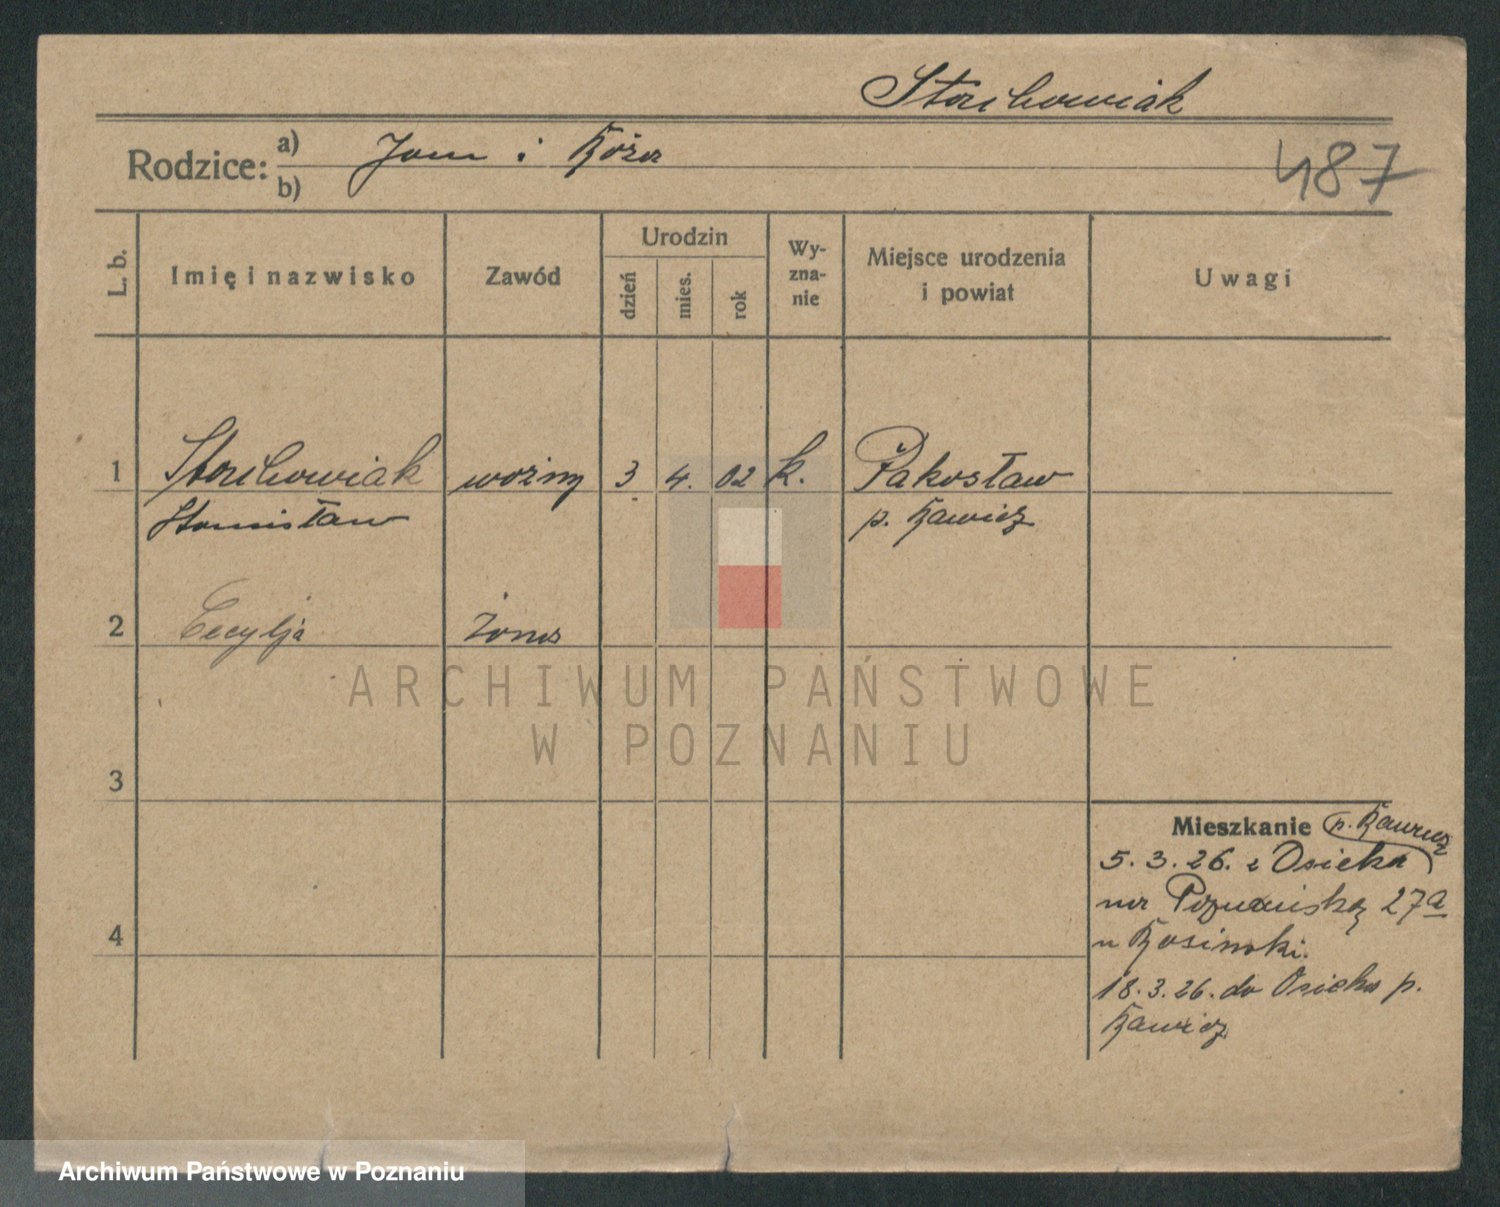 Stachowiak
Rodzice: a) Jan i Róża
b)
487
L. b.
Imię i nazwisko
Zawód
Urodzin
dzień
mies.
rok
Wy-
zna-
nie
Miejsce urodzenia
i powiat
Uwagi
1 Stachowiak woźny 3 4. 02 k. Pakosław
Stanisław p. Rawicz
2 Cecylja żona
3
4
Mieszkanie p. Rawicz
5.3.26. z Osieka
na Poznańską 27a
u Rosinski.
18.3.26. do Osieka p.
Rawicz
ARCHIWUM PAŃSTWOWE
W POZNANIU
Archiwum Państwowe w Poznaniu